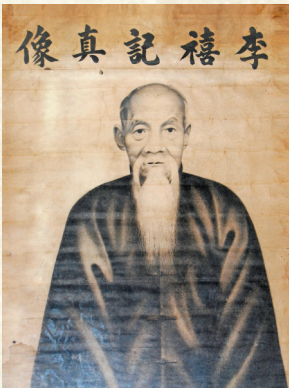 李禧記真像